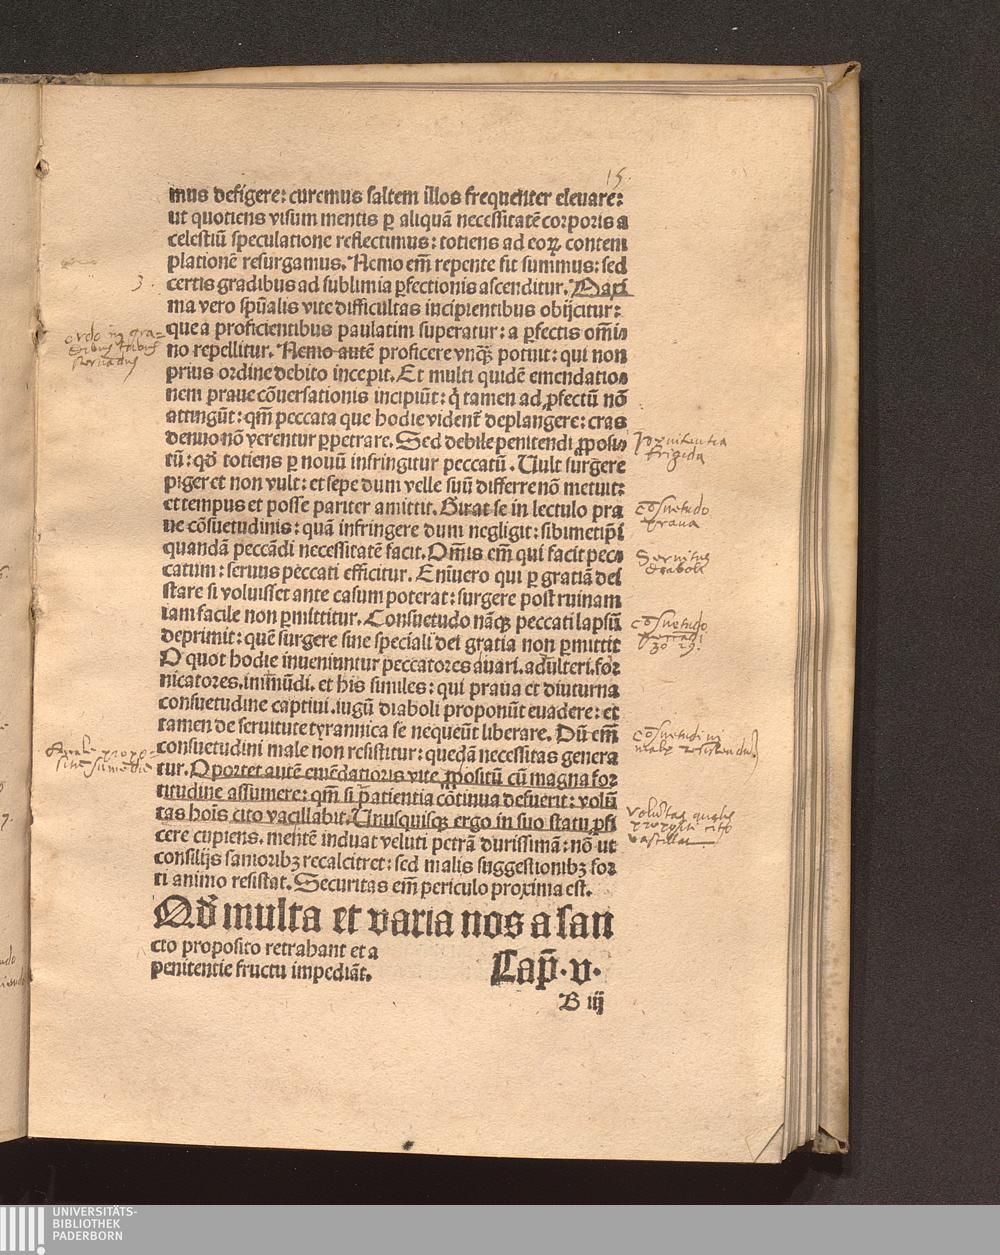 15.
mus defigere: curemus saltem illos frequenter eleuare:
ut quotiens visum mentis ꝑ aliquã necessitatẽ corporis a
celestiũ speculatione reflectimus: totiens ad eoꝝ contem
plationẽ resurgamus. Nemo em̃ repente fit summus: sed
3. certis gradibus ad sublimia ꝑfectionis ascenditur. Maxi
ma vero sp̃ualis vite difficultas incipientibus obijcitur:
que a proficientibus paulatim superatur: a ꝑfectis om̃i⸗
no repellitur. Nemo autẽ proficere vnqȝ potuit: qui non
prius ordine debito incepit. Et multi quidẽ emendatio⸗
nem praue cõuersationis incipiũt: q̃ tamen ad ꝓfectũ nõ
attingũt: qm̃ peccata que hodie vident̃ deplangere: cras
denuo nõ verentur ꝑpetrare. Sed debile penitendi ꝓposi⸗
tũ: qđ totiens ꝑ nouũ infringitur peccatũ. Vult surgere
piger et non vult: et sepe dum velle suũ differre nõ metuit:
et tempus et posse pariter amittit. Girat se in lectulo pra
ue cõsuetudinis: quã infringere dum negligit: sibimetip̃i
quandã peccãdi necessitatẽ facit. Om̃is em̃ qui facit pec⸗
catum: seruus peccati efficitur. Enĩuero qui ꝑ gratiã dei
stare si voluisset ante casum poterat: surgere post ruinam
iam facile non ꝑmittitur. Consuetudo nãqȝ peccati lapsũ
deprimit: quẽ surgere sine speciali dei gratia non ꝑmittit
O quot hodie inueniuntur peccatores auari. adulteri. for
nicatores. inm̃ũdi. et his similes: qui praua et diuturna
consuetudine captiui. iugũ diaboli proponũt euadere: et
tamen de seruitute tyrannica se nequeũt liberare. Dũ em̃
consuetudini male non resistitur: quedã necessitas genera
tur. Oportet autẽ emẽdatioris vite ꝓpositũ cũ magna for
titudine assumere: qm̃ si p̃atientia cõtinua defuerit: volũ
tas hoĩs cito vacillabit. Unusquisqȝ ergo in suo statu ꝓfi
cere cupiens. mentẽ induat veluti petrã durissimã: nõ ut
consilijs sanioribȝ recalcitret: sed malis suggestionibȝ for
ti animo resistat. Securitas em̃ periculo proxima est.
Qđ multa et varia nos a san
cto proposito retrahant et a
penitentie fructu impediãt. Cap̃. v.
B iij
ordo in gra=
dibus
seruandus
poenitentia
frigida
cõsuetudo
praua
Seruitus
diaboli
cõsuetudo
cõsuetudini
malae resistendũ
voluntas
propositi cito
vacillat
UNIVERSITÄTS-
BIBLIOTHEK
PADERBORN